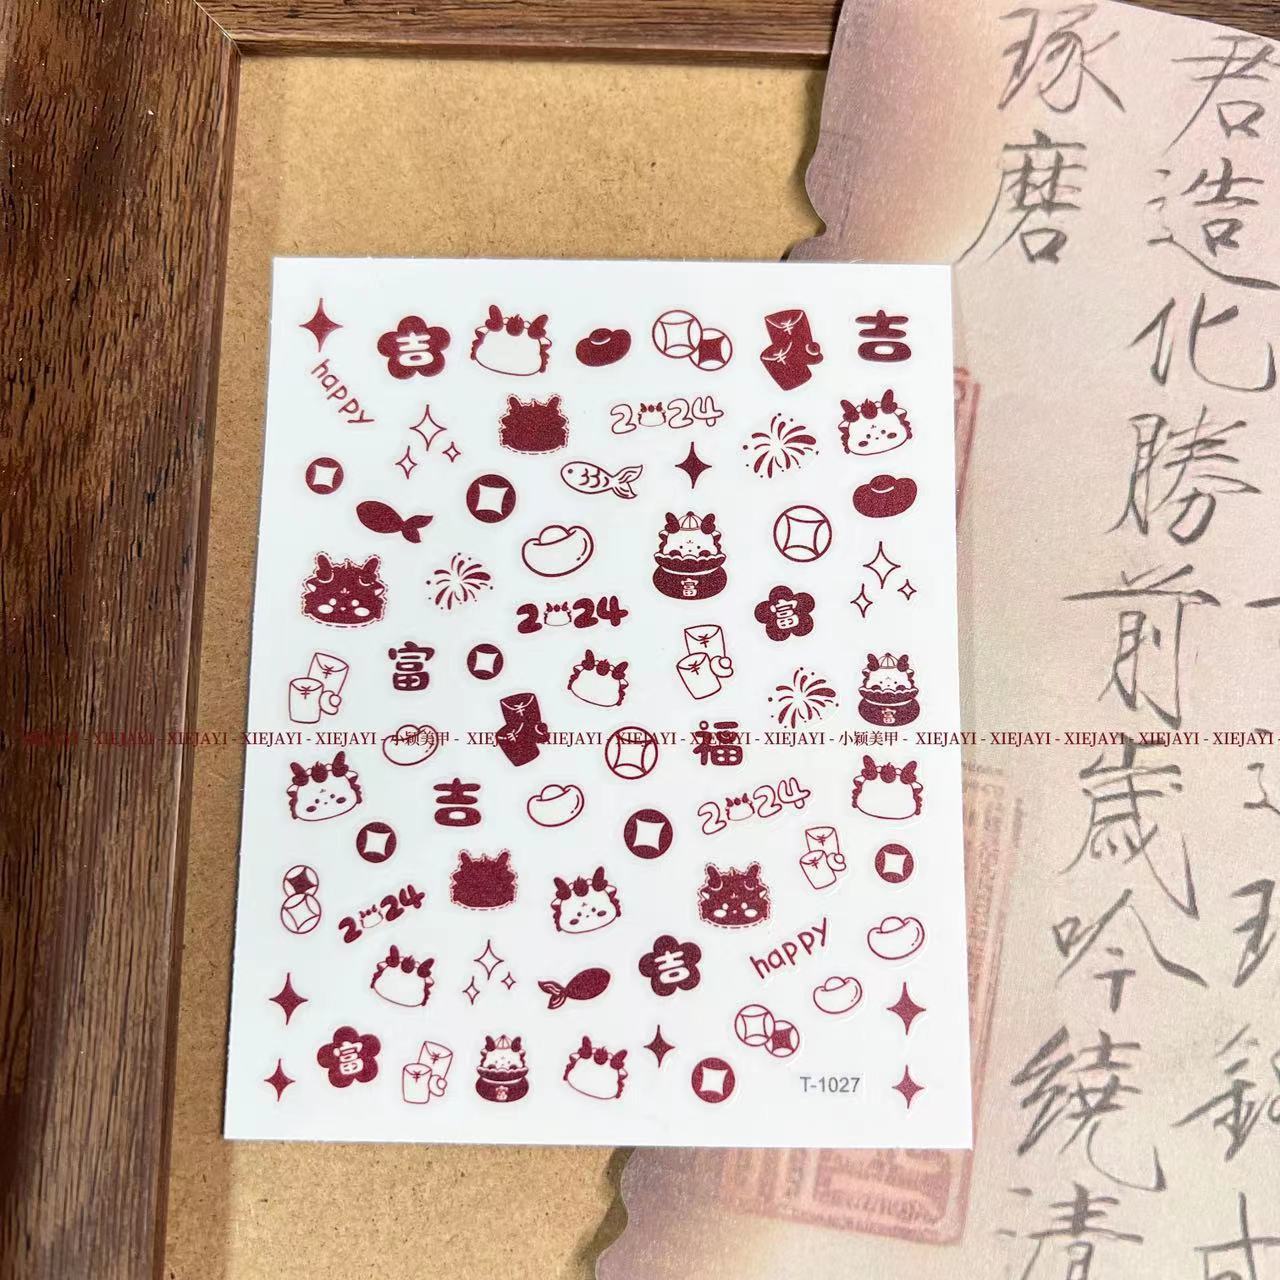 琢磨
君造化勝前歲吟繞清
吉
吉
happy
2024
富
2024
富
富
富
XIEJAYI - XIEJAYI - XIEJAYI - XIEJAYI - 小颖美甲 - XIEJAYI - XIEJAYI - XIEJAYI - XIEJAYI - XIEJAYI - 小颖美甲 - XIEJAYI - XIEJAYI - XIEJAYI - XIEJAYI - XIEJAYI
福
吉
2024
2024
happy
吉
富
富
T-1027